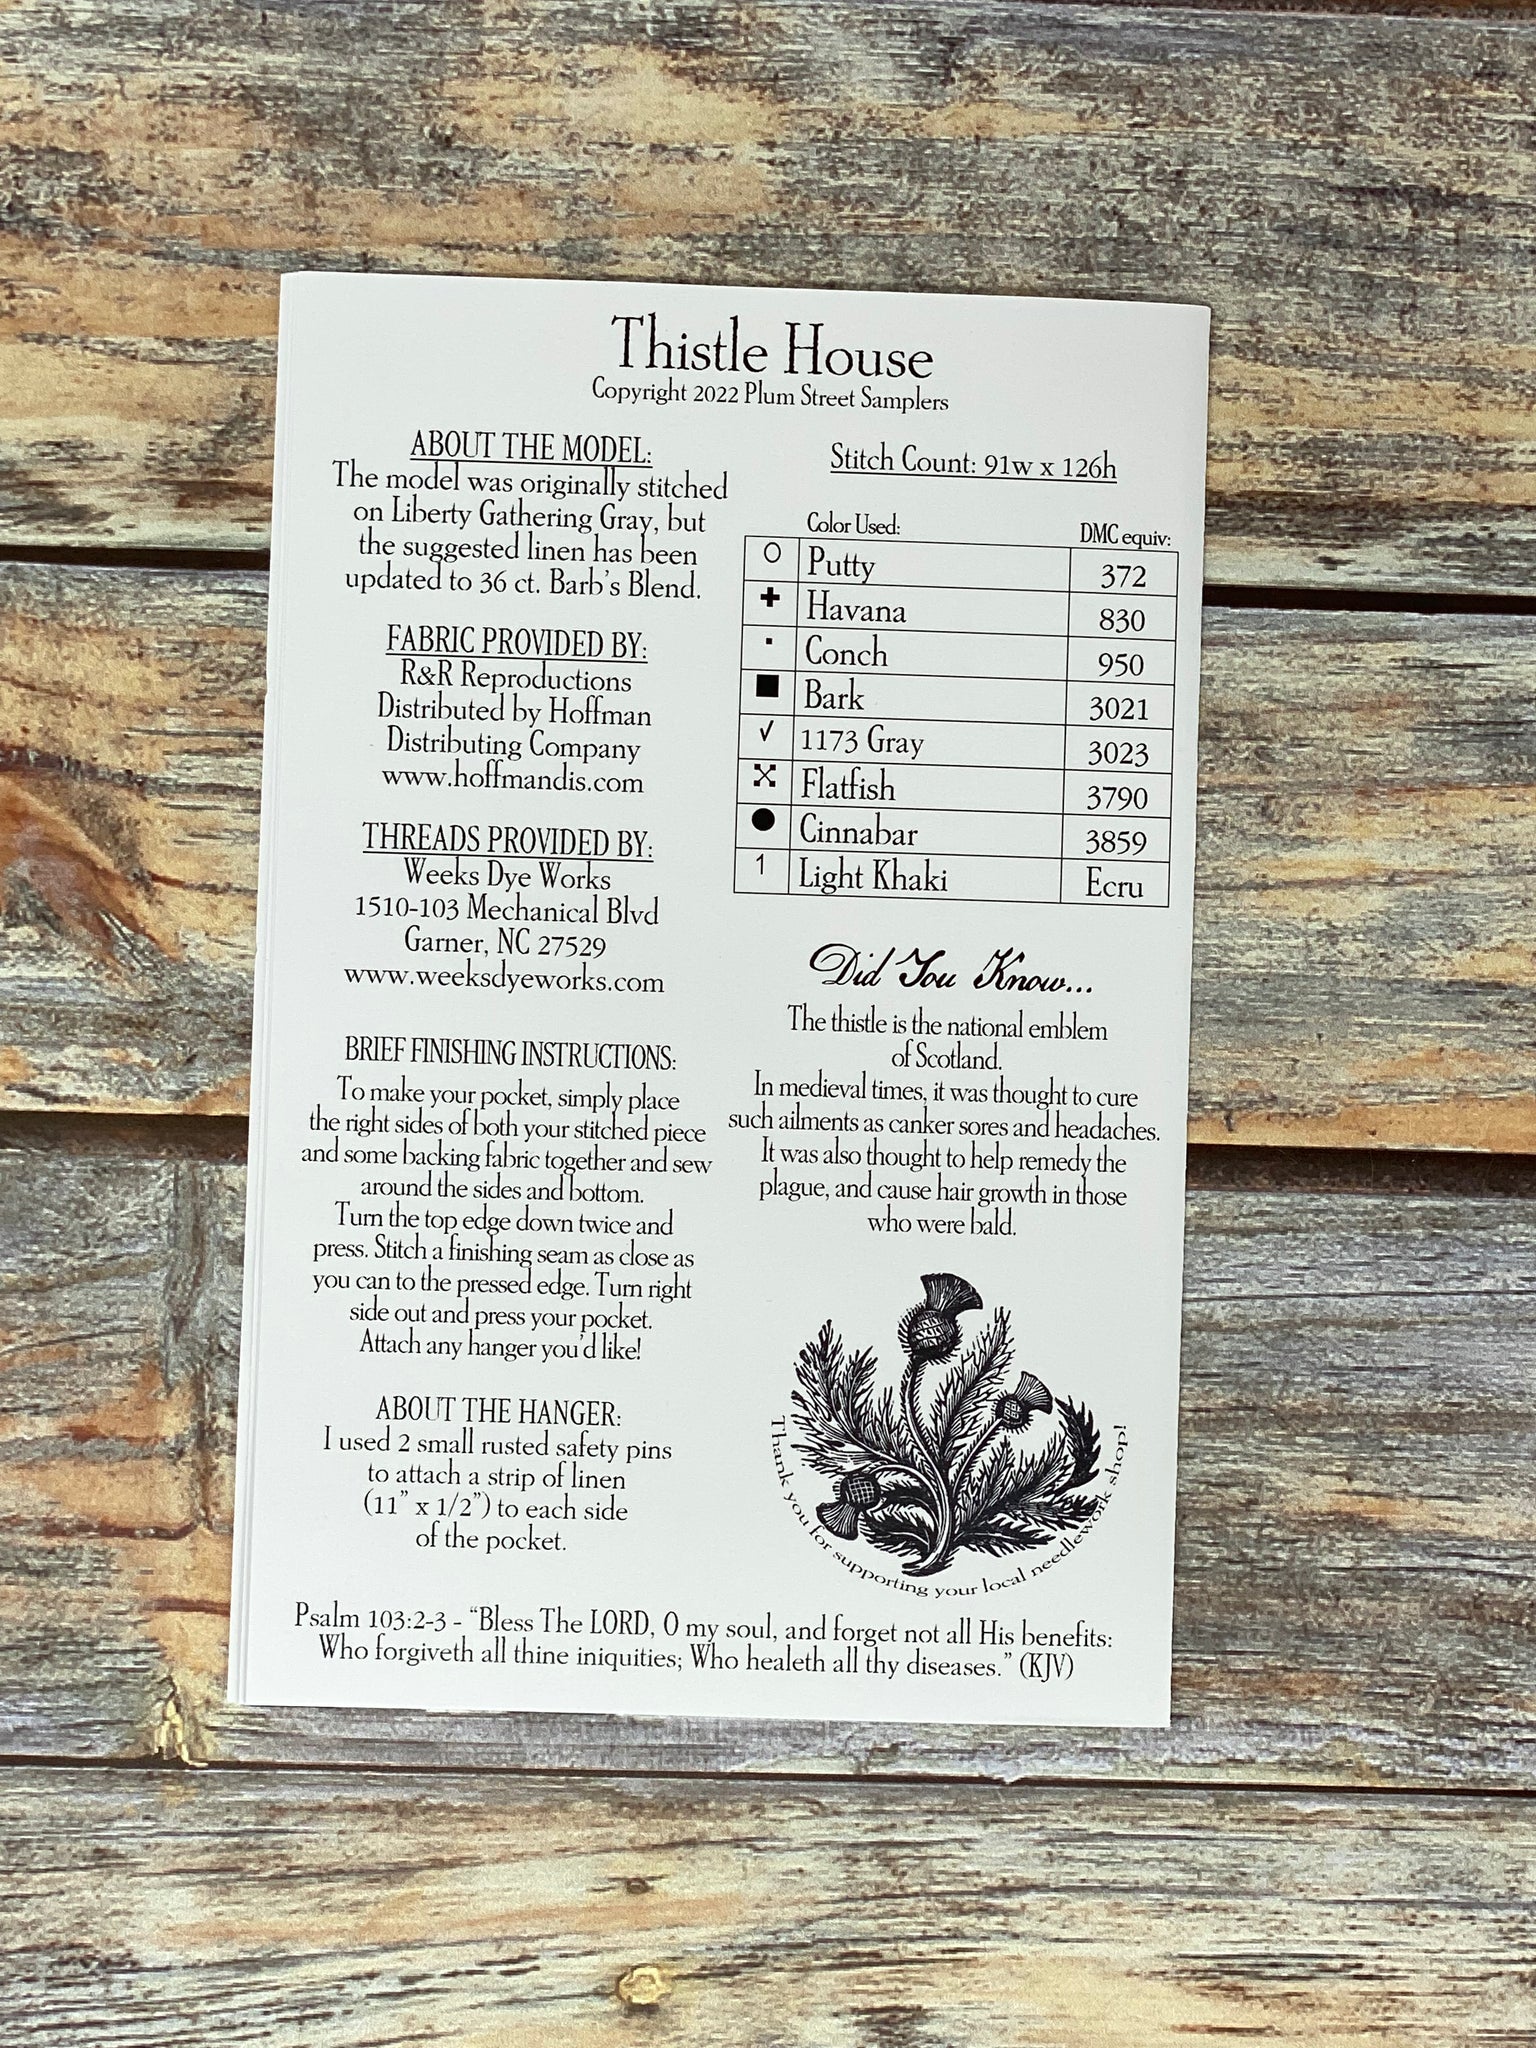 Thistle House
Copyright 2022 Plum Street Samplers
ABOUT THE MODEL:
The model was originally stitched
on Liberty Gathering Gray, but
the suggested linen has been
updated to 36 ct. Barb's Blend.
FABRIC PROVIDED BY:
R&R Reproductions
Distributed by Hoffman
Distributing Company
www.hoffmandis.com
THREADS PROVIDED BY:
Weeks Dye Works
1510-103 Mechanical Blvd
Garner, NC 27529
www.weeksdyeworks.com
BRIEF FINISHING INSTRUCTIONS:
To make your pocket, simply place
the right sides of both your stitched piece
and some backing fabric together and sew
around the sides and bottom.
Turn the top edge down twice and
press. Stitch a finishing seam as close as
you can to the pressed edge. Turn right
side out and press your pocket.
Attach any hanger you'd like!
ABOUT THE HANGER:
I used 2 small rusted safety pins
to attach a strip of linen
(11" x 1/2") to each side
of the pocket.
Stitch Count: 91w x 126h
Color Used: DMC equiv:
Putty 372
Havana 830
Conch 950
Bark 3021
1173 Gray 3023
Flatfish 3790
Cinnabar 3859
1 Light Khaki Ecru
Did You Know...
The thistle is the national emblem
of Scotland.
In medieval times, it was thought to cure
such ailments as canker sores and headaches.
It was also thought to help remedy the
plague, and cause hair growth in those
who were bald.
Thank you for supporting your local needlework shop!
Psalm 103:2-3 - "Bless The LORD, O my soul, and forget not all His benefits:
Who forgiveth all thine iniquities; Who healeth all thy diseases." (KJV)